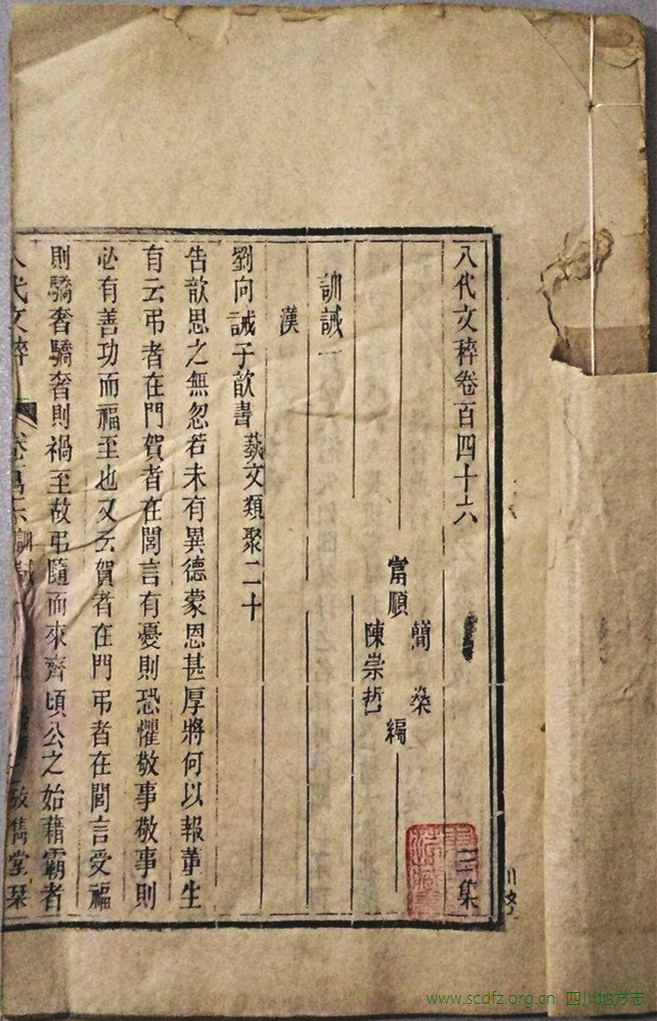 八代文稡卷百四十六 三集
簡燊
富順 編
陳崇哲
訓誡一
漢
劉向誡子歆書 蓺文類聚二十
告歆思之無忽若未有異德蒙恩甚厚將何以報董生
有云弔者在門賀者在閭言有憂則恐懼敬事敬事則
必有善功而福至也又云賀者在門弔者在閭言受福
則驕奢驕奢則禍至故弔隨而來齊頃公之始藉霸者
八代文稡 訓誡 雋堂栞
www.scdfz.org.cn 四川地方志